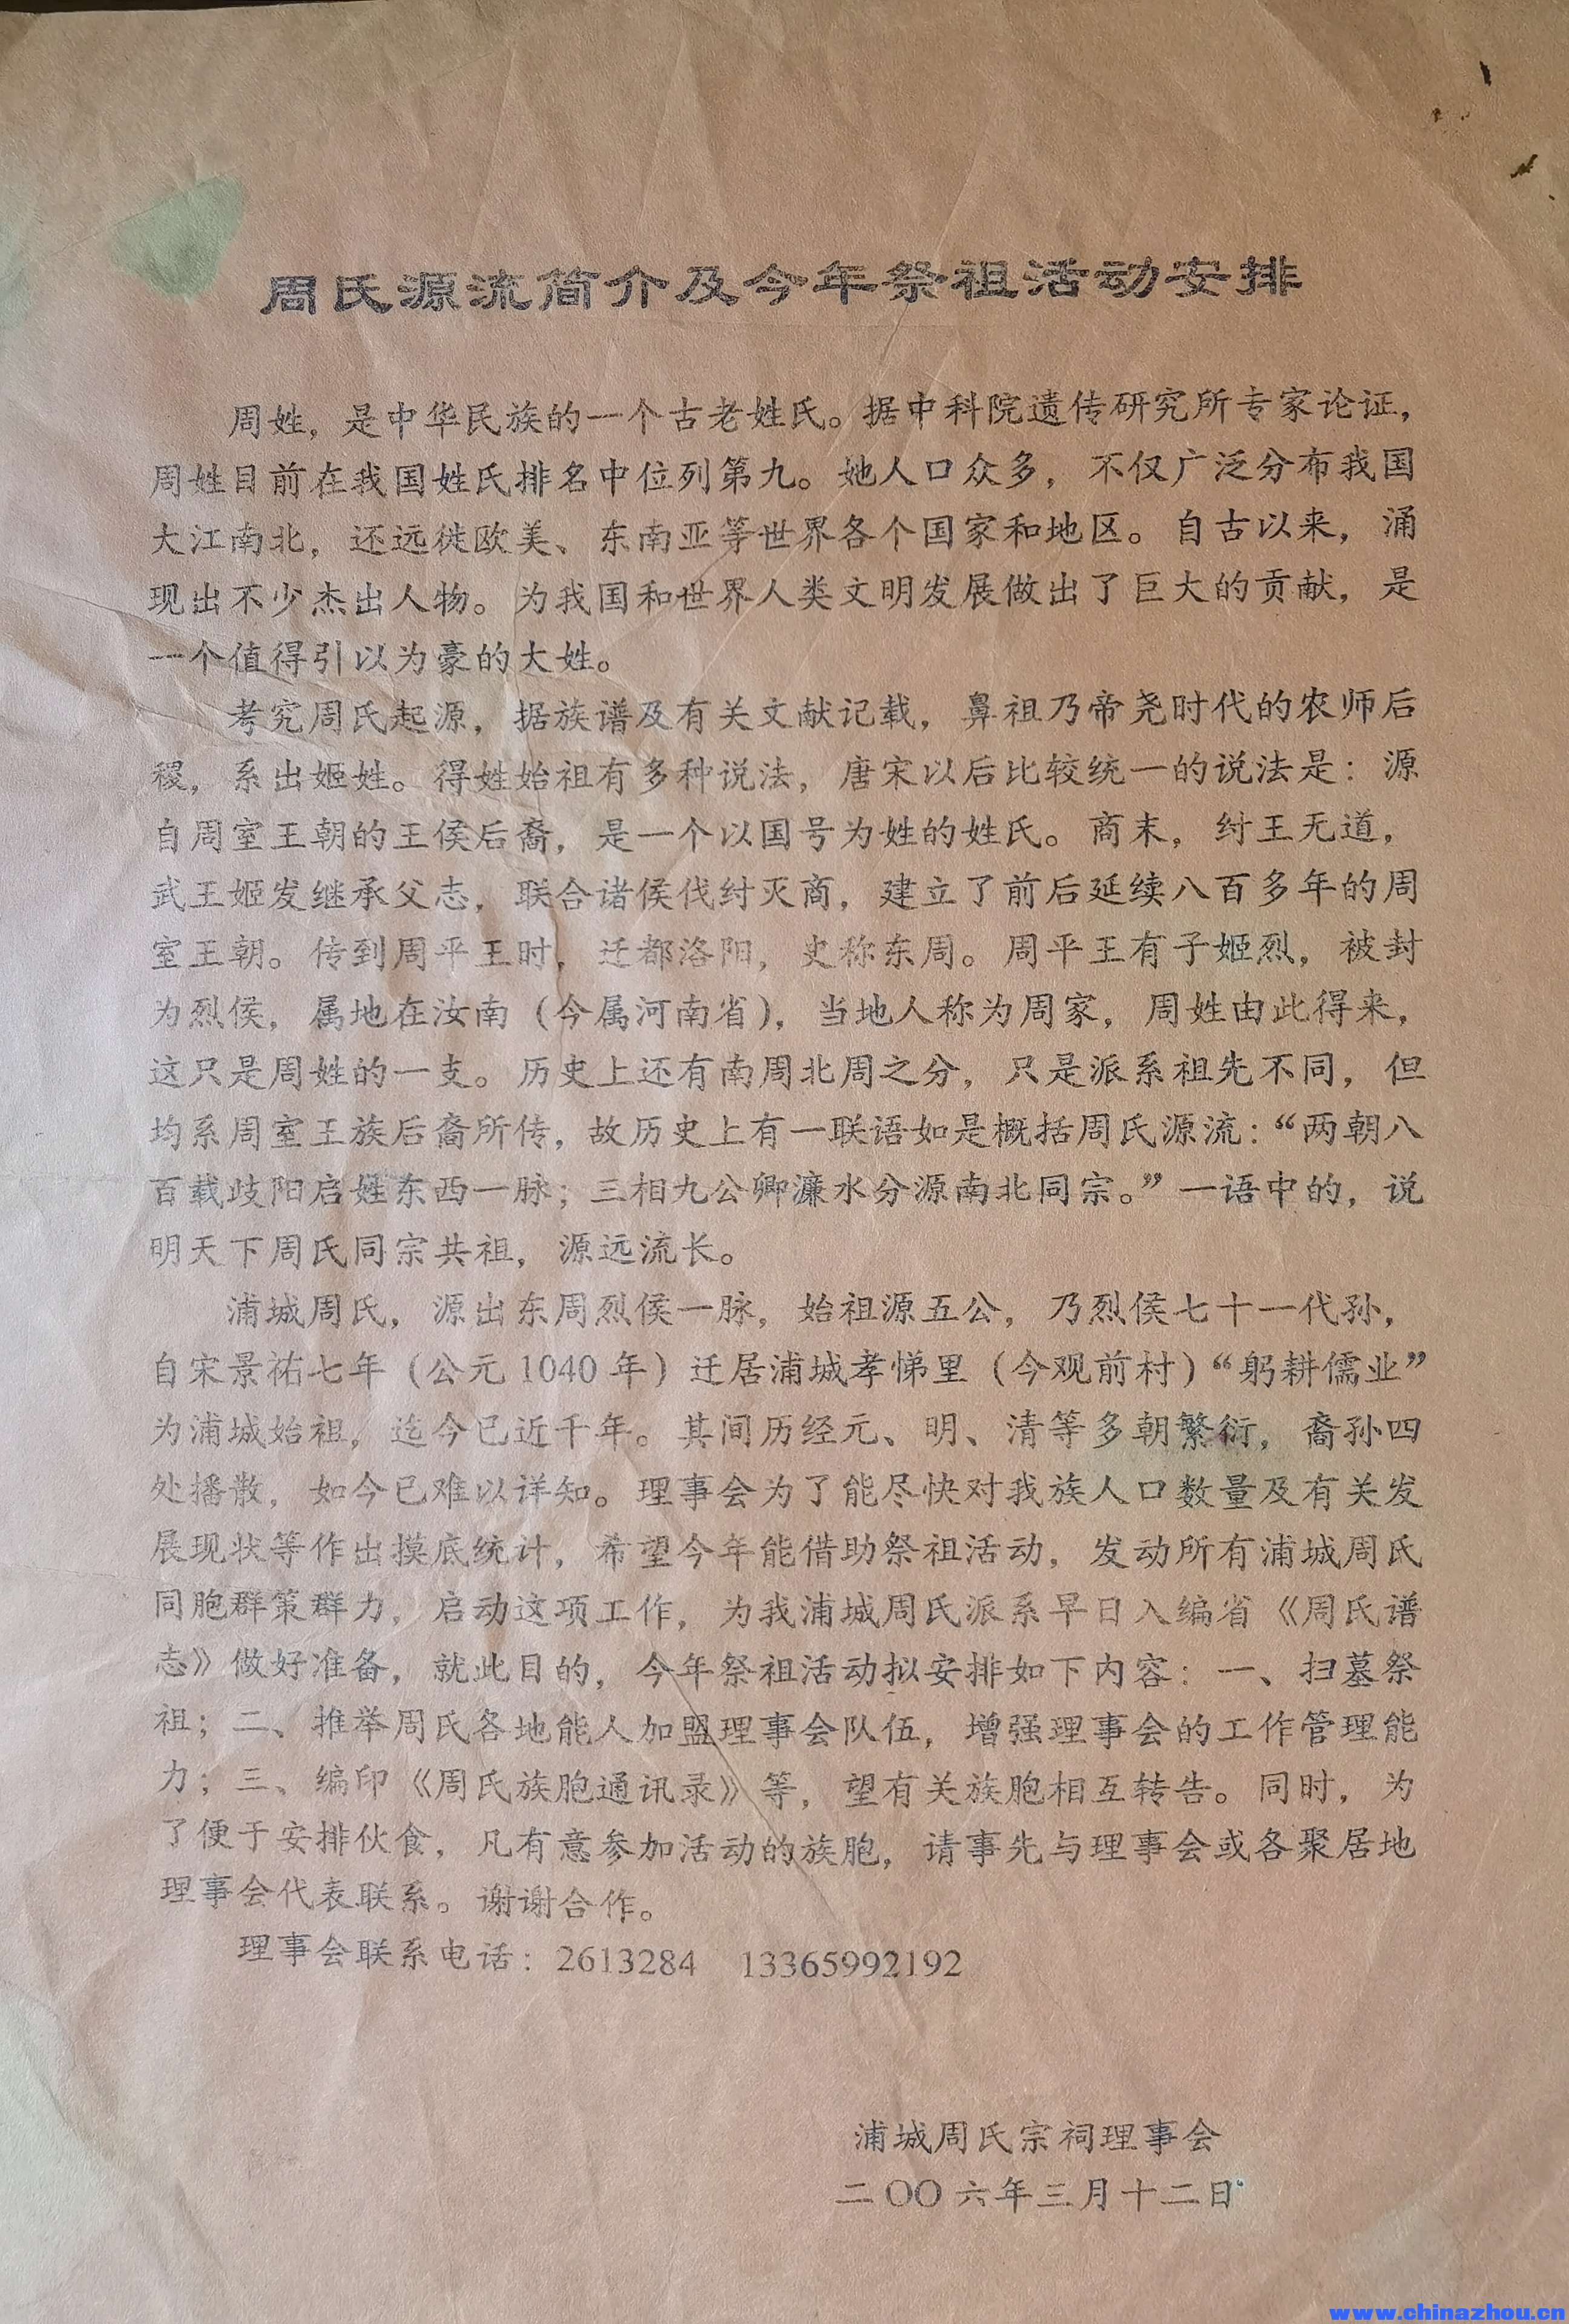 周氏源流简介及今年祭祖活动安排
周姓，是中华民族的一个古老姓氏。据中科院遗传研究所专家论证，
周姓目前在我国姓氏排名中位列第九。她人口众多，不仅广泛分布我国
大江南北，还远徙欧美、东南亚等世界各个国家和地区。自古以来，涌
现出不少杰出人物。为我国和世界人类文明发展做出了巨大的贡献，是
一个值得引以为豪的大姓。
考究周氏起源，据族谱及有关文献记载，鼻祖乃帝尧时代的农师后
稷，系出姬姓。得姓始祖有多种说法，唐宋以后比较统一的说法是：源
自周室王朝的王侯后裔，是一个以国号为姓的姓氏。商末，纣王无道，
武王姬发继承父志，联合诸侯伐纣灭商，建立了前后延续八百多年的周
室王朝。传到周平王时，迁都洛阳，史称东周。周平王有子姬烈，被封
为烈侯，属地在汝南（今属河南省），当地人称为周家，周姓由此得来，
这只是周姓的一支。历史上还有南周北周之分，只是派系祖先不同，但
均系周室王族后裔所传，故历史上有一联语如是概括周氏源流：“两朝八
百载歧阳启姓东西一脉；三相九公卿濂水分源南北同宗。”一语中的，说
明天下周氏同宗共祖，源远流长。
浦城周氏，源出东周烈侯一脉，始祖源五公，乃烈侯七十一代孙，
自宋景祐七年（公元1040年）迁居浦城孝悌里（今观前村）“躬耕儒业”
为浦城始祖，迄今已近千年。其间历经元、明、清等多朝繁衍，裔孙四
处播散，如今已难以详知。理事会为了能尽快对我族人口数量及有关发
展现状等作出摸底统计，希望今年能借助祭祖活动，发动所有浦城周氏
同胞群策群力，启动这项工作，为我浦城周氏派系早日入编省《周氏谱
志》做好准备，就此目的，今年祭祖活动拟安排如下内容：一、扫墓祭
祖；二、推举周氏各地能人加盟理事会队伍，增强理事会的工作管理能
力；三、编印《周氏族胞通讯录》等，望有关族胞相互转告。同时，为
了便于安排伙食，凡有意参加活动的族胞，请事先与理事会或各聚居地
理事会代表联系。谢谢合作。
理事会联系电话：2613284 13365992192
浦城周氏宗祠理事会
二〇〇六年三月十二日
www.chinazhou.cn